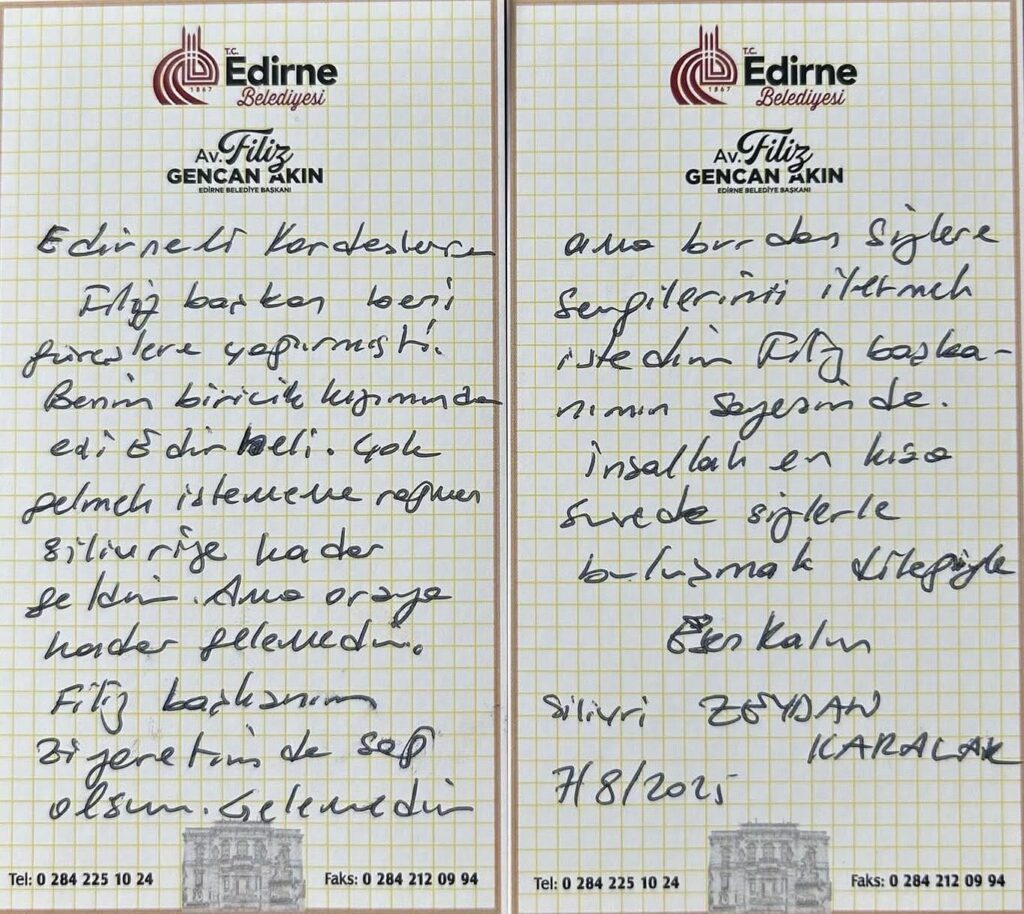 T.C.
Edirne
Belediyesi
1867
Av. Filiz
GENCAN AKIN
EDİRNE BELEDİYE BAŞKANI
Edirneli Kardeşlerim
Filiz başkan beni
güreşlere çağırmıştı.
Benim biricik kızımında
eşi Edirneli. Çok
gelmek istememe rağmen
Silivriye kadar
geldim. Ama oraya
kadar gelemedim.
Filiz başkanım
ziyaretimde sağ
olsun. Gelemedim
Tel: 0 284 225 10 24
Faks: 0 284 212 09 94
T.C.
Edirne
Belediyesi
1867
Av. Filiz
GENCAN AKIN
EDİRNE BELEDİYE BAŞKANI
ama burdan sizlere
sevgilerimi iletmek
istedim Filiz başka-
nımın sayesinde.
İnşallah en kısa
sürede sizlerle
buluşmak dileğiyle
Esen Kalın
Silivri ZEYDAN
KARALAR
7/8/2025
Tel: 0 284 225 10 24
Faks: 0 284 212 09 94